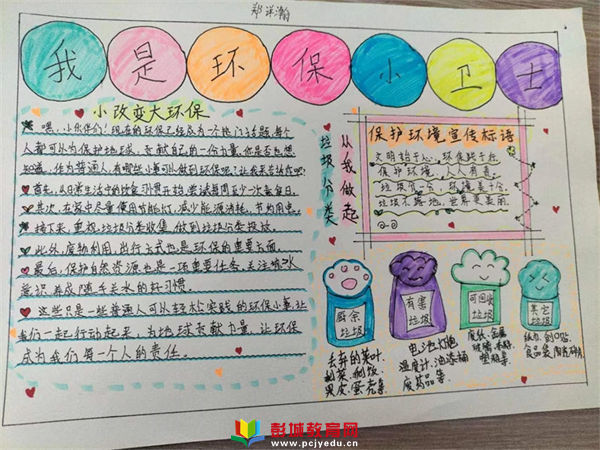 郑洋瀚
我是环保小卫士
小改变大环保
嘿,小伙伴们!现在的环保已经成为一个热门话题,每个
人都可以为保护地球贡献自己的一份力量,你是否也想
知道,作为普通人,有哪些小事可以做到环保呢?让我来告诉你吧!
首先,从日常生活中的饮食习惯开始,尝试每周至少一次素食日。
其次,在家中尽量使用节能灯,减少能源消耗,节约用电。
接下来,重视垃圾分类收集,做到垃圾分类投放。
此外,废物利用,出行方式也是环保的重要方面。
最后,保护自然资源也是一项重要任务,关注节水
意识,养成随手关水的好习惯。
这些只是一些普通人可以轻松实践的环保小事,让
我们一起行动起来,为地球贡献力量,让环保
成为我们每一个人的责任。
垃圾分类
从我做起
保护环境宣传标语
文明始于心,环保践于行
保护环境,人人有责。
垃圾分一分,环境美十分。
垃圾不落地,世界更美丽。
厨余
垃圾
有害
垃圾
可回收
垃圾
其它
垃圾
丢弃的菜叶
剩菜、剩饭
果皮、蛋壳等
电池、灯泡
温度计、油漆桶
废药品等
废纸、金属
玻璃、布料
塑瓶等
食品袋
彭城教育网
www.pcjyedu.cn